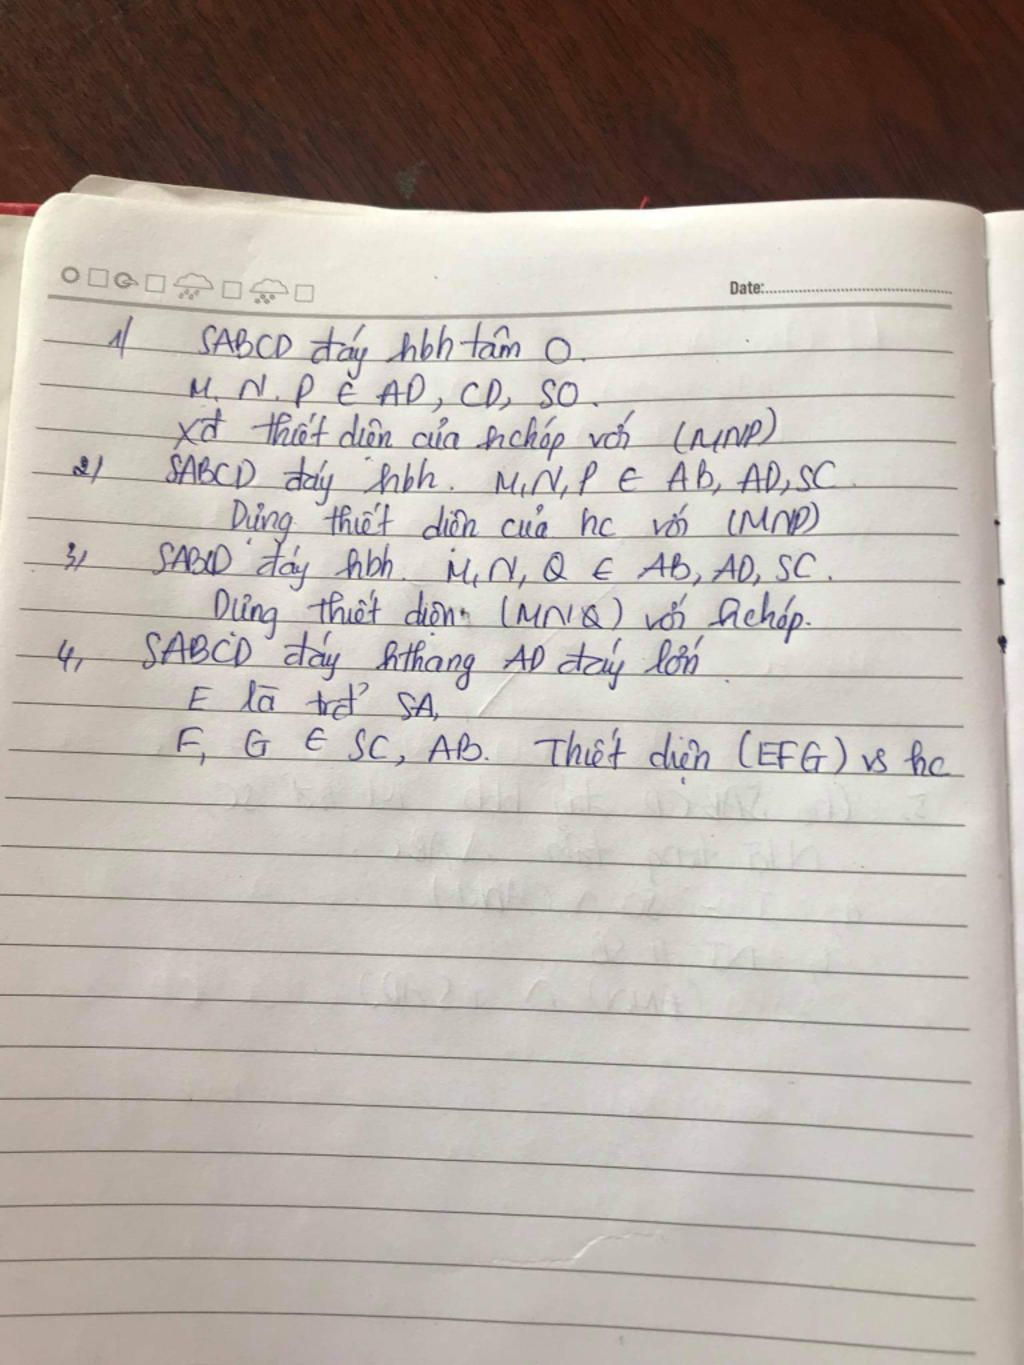 Date:
1/ SABCD đáy hbh tâm O.
M, N, P ∈ AD, CD, SO.
Xđ thiết diện của hchóp với (MNP)
2/ SABCD đáy hbh. M, N, P ∈ AB, AD, SC
Dựng thiết diện của hc với (MNP)
3, SABCD đáy hbh. M, N, Q ∈ AB, AD, SC.
Dựng thiết diện (MNQ) với hchóp.
4, SABCD đáy hthang AD đáy lớn.
E là trđ SA,
F, G ∈ SC, AB. Thiết diện (EFG) vs hc